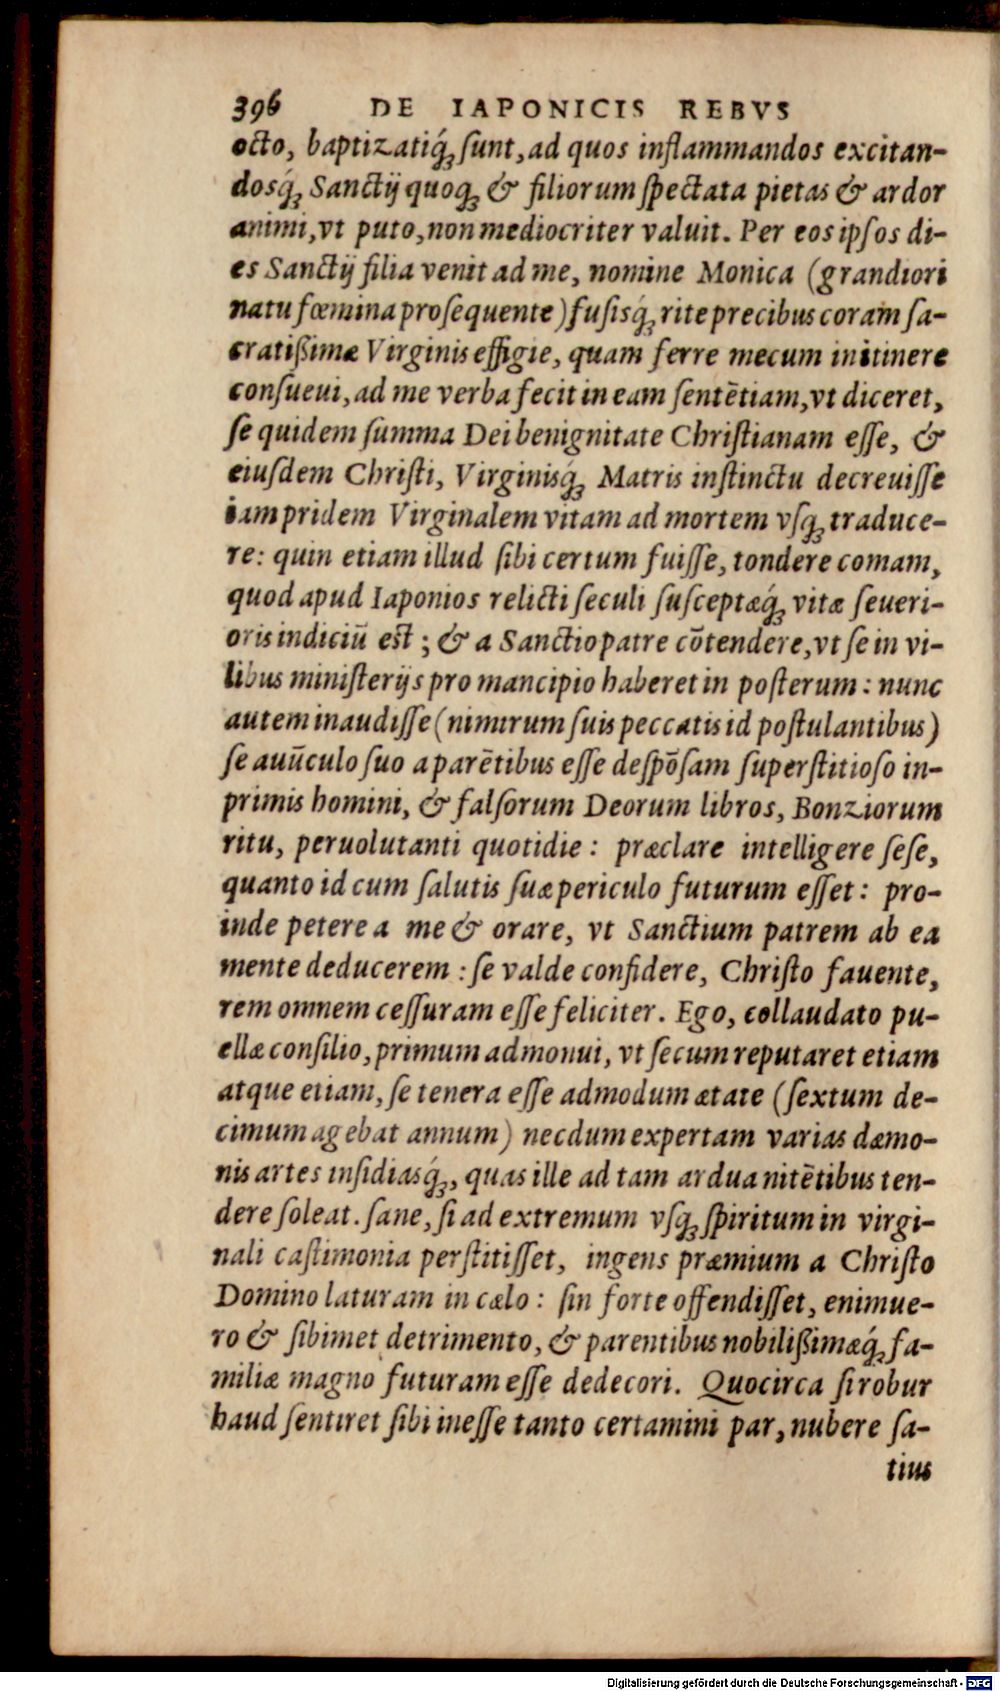 396 DE IAPONICIS REBVS
octo, baptizatiq́ꝫ sunt, ad quos inflammandos excitan-
dosq́ꝫ Sanctij quoqꝫ & filiorum spectata pietas & ardor
animi, vt puto, non mediocriter valuit. Per eos ipsos di-
es Sanctij filia venit ad me, nomine Monica (grandiori
natu fœmina prosequente) fusisq́ꝫ rite precibus coram sa-
cratißimæ Virginis effigie, quam ferre mecum in itinere
consueui, ad me verba fecit in eam sentētiam, vt diceret,
se quidem summa Dei benignitate Christianam esse, &
eiusdem Christi, Virginisq́ꝫ Matris instinctu decreuisse
iampridem Virginalem vitam ad mortem vsqꝫ traduce-
re: quin etiam illud sibi certum fuisse, tondere comam,
quod apud Iaponios relicti seculi susceptæq́ꝫ vitæ seueri-
oris indiciū est; & a Sanctio patre cōtendere, vt se in vi-
libus ministerijs pro mancipio haberet in posterum: nunc
autem inaudisse (nimirum suis peccatis id postulantibus)
se auūculo suo a parētibus esse despōsam superstitioso in-
primis homini, & falsorum Deorum libros, Bonziorum
ritu, peruolutanti quotidie: præclare intelligere sese,
quanto id cum salutis suæ periculo futurum esset: pro-
inde petere a me & orare, vt Sanctium patrem ab ea
mente deducerem: se valde confidere, Christo fauente,
rem omnem cessuram esse feliciter. Ego, collaudato pu-
ellæ consilio, primum admonui, vt secum reputaret etiam
atque etiam, se tenera esse admodum ætate (sextum de-
cimum agebat annum) necdum expertam varias dæmo-
nis artes insidiasq́ꝫ, quas ille ad tam ardua nitētibus ten-
dere soleat. sane, si ad extremum vsqꝫ spiritum in virgi-
nali castimonia perstitisset, ingens præmium a Christo
Domino laturam in cælo: sin forte offendisset, enimue-
ro & sibimet detrimento, & parentibus nobilißimæq́ꝫ fa-
miliæ magno futuram esse dedecori. Quocirca si robur
haud sentiret sibi inesse tanto certamini par, nubere sa-
tius
Digitalisierung gefördert durch die Deutsche Forschungsgemeinschaft - DFG